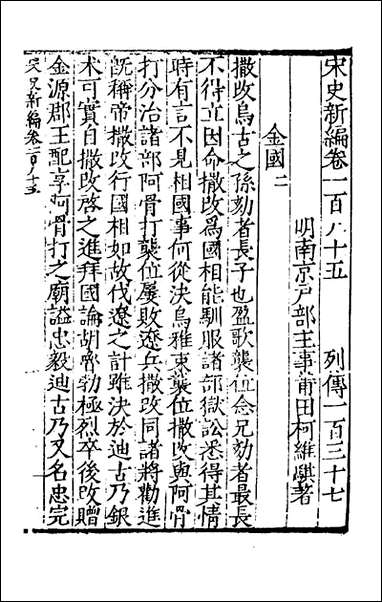 宋史新編卷一百八十五 列傳一百三十七
明南京戶部主事莆田柯維騏著
金國二
撒改烏古之孫劾者長子也盈歌襲位念兄劾者最長
不得立因命撒改爲國相能馴服諸部獄訟悉得其情
時有言不見相國事何從決烏雅束襲位撒改與阿骨
打分治諸部阿骨打襲位屢敗遼兵撒改同諸將勸進
旣稱帝撒改行國相如故伐遼之計雖決於迪古乃銀
术可實自撒改啓之進拜國論胡魯勃極烈卒後改贈
金源郡王配享阿骨打之廟謚忠毅迪古乃又名忠完
宋史新編卷一百八十五